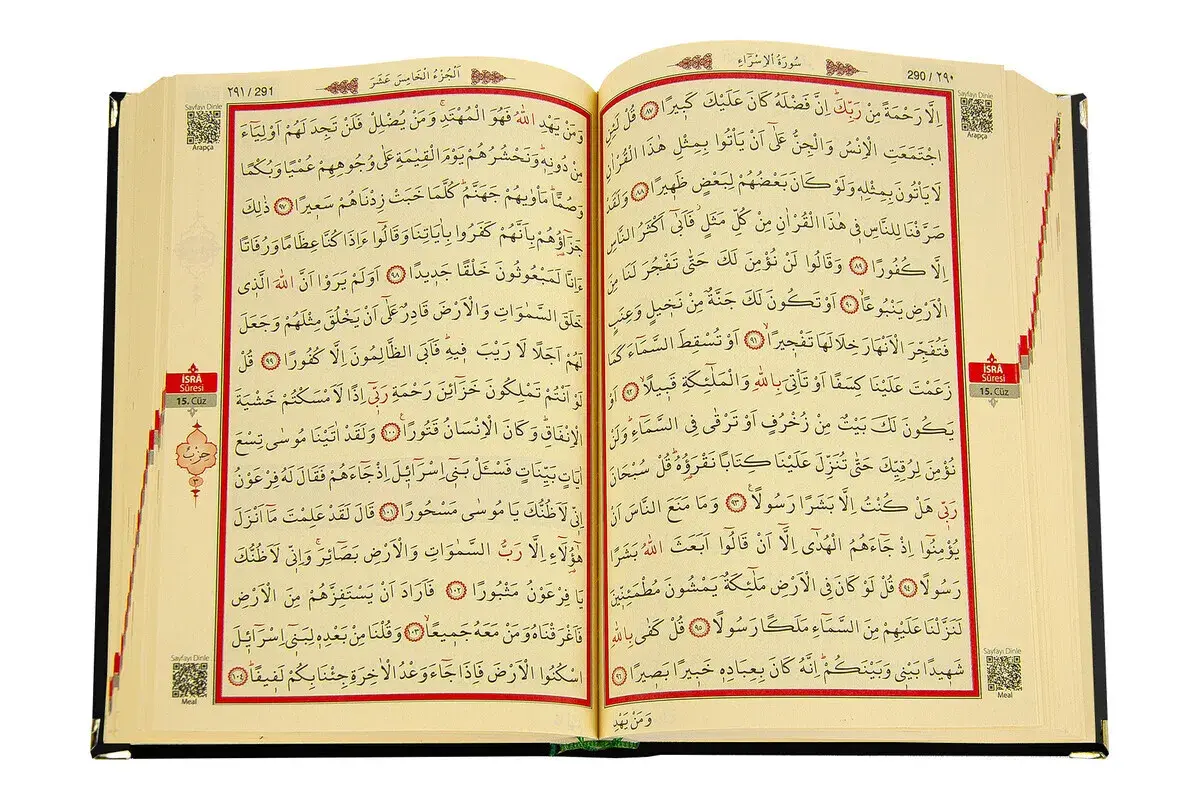 سُورَةُ الْاِسْرَاءِ
290 / ٢٩٠
Sayfayı Dinle
Arapça
اِلَّا رَحْمَةً مِنْ رَبِّكَۜ اِنَّ فَضْلَهُ كَانَ عَلَيْكَ كَب۪يرًا ﴿٨٧﴾ قُلْ لَئِنِ
اجْتَمَعَتِ الْاِنْسُ وَالْجِنُّ عَلٰٓى اَنْ يَأْتُوا بِمِثْلِ هٰذَا الْقُرْاٰنِ
لَا يَأْتُونَ بِمِثْلِه۪ وَلَوْ كَانَ بَعْضُهُمْ لِبَعْضٍ ظَه۪يرًا ﴿٨٨﴾ وَلَقَدْ
صَرَّفْنَا لِلنَّاسِ ف۪ي هٰذَا الْقُرْاٰنِ مِنْ كُلِّ مَثَلٍۘ فَاَبٰٓى اَكْثَرُ النَّاسِ
اِلَّا كُفُورًا ﴿٨٩﴾ وَقَالُوا لَنْ نُؤْمِنَ لَكَ حَتّٰى تَفْجُرَ لَنَا مِنَ
الْاَرْضِ يَنْبُوعًاۙ ﴿٩٠﴾ اَوْ تَكُونَ لَكَ جَنَّةٌ مِنْ نَخ۪يلٍ وَعِنَبٍ
فَتُفَجِّرَ الْاَنْهَارَ خِلَالَهَا تَفْج۪يرًاۙ ﴿٩١﴾ اَوْ تُسْقِطَ السَّمَٓاءَ كَمَا
زَعَمْتَ عَلَيْنَا كِسَفًا اَوْ تَأْتِيَ بِاللّٰهِ وَالْمَلٰٓئِكَةِ قَب۪يلًاۙ ﴿٩٢﴾ اَوْ
يَكُونَ لَكَ بَيْتٌ مِنْ زُخْرُفٍ اَوْ تَرْقٰى فِي السَّمَٓاءِۜ وَلَنْ
نُؤْمِنَ لِرُقِيِّكَ حَتّٰى تُنَزِّلَ عَلَيْنَا كِتَابًا نَقْرَؤُ۬هُۜ قُلْ سُبْحَانَ
رَبّ۪ي هَلْ كُنْتُ اِلَّا بَشَرًا رَسُولًا۟ ﴿٩٣﴾ وَمَا مَنَعَ النَّاسَ اَنْ
يُؤْمِنُٓوا اِذْ جَٓاءَهُمُ الْهُدٰٓى اِلَّٓا اَنْ قَالُٓوا اَبَعَثَ اللّٰهُ بَشَرًا
رَسُولًا ﴿٩٤﴾ قُلْ لَوْ كَانَ فِي الْاَرْضِ مَلٰٓئِكَةٌ يَمْشُونَ مُطْمَئِنّ۪ينَ
لَنَزَّلْنَا عَلَيْهِمْ مِنَ السَّمَٓاءِ مَلَكًا رَسُولًا ﴿٩٥﴾ قُلْ كَفٰى بِاللّٰهِ
شَه۪يدًا بَيْن۪ي وَبَيْنَكُمْۜ اِنَّهُ كَانَ بِعِبَادِه۪ خَب۪يرًا بَص۪يرًا ﴿٩٦﴾
وَمَنْ يَهْدِ
İSRÂ
Sûresi
15. Cüz
Sayfayı Dinle
Meal
اَلْجُزْءُ الْخَامِسَ عَشَرَ
٢٩١ / 291
Sayfayı Dinle
Arapça
وَمَنْ يَهْدِ اللّٰهُ فَهُوَ الْمُهْتَدِۚ وَمَنْ يُضْلِلْ فَلَنْ تَجِدَ لَهُمْ اَوْلِيَٓاءَ
مِنْ دُونِه۪ۜ وَنَحْشُرُهُمْ يَوْمَ الْقِيٰمَةِ عَلٰى وُجُوهِهِمْ عُمْيًا وَبُكْمًا
وَصُمًّاۜ مَأْوٰيهُمْ جَهَنَّمُۜ كُلَّمَا خَبَتْ زِدْنَاهُمْ سَع۪يرًا ﴿٩٧﴾ ذٰلِكَ
جَزَٓاؤُ۬هُمْ بِاَنَّهُمْ كَفَرُوا بِاٰيَاتِنَا وَقَالُٓوا ءَاِذَا كُنَّا عِظَامًا وَرُفَاتًا
ءَاِنَّا لَمَبْعُوثُونَ خَلْقًا جَد۪يدًا ﴿٩٨﴾ اَوَلَمْ يَرَوْا اَنَّ اللّٰهَ الَّذ۪ي
خَلَقَ السَّمٰوَاتِ وَالْاَرْضَ قَادِرٌ عَلٰٓى اَنْ يَخْلُقَ مِثْلَهُمْ وَجَعَلَ
لَهُمْ اَجَلًا لَا رَيْبَ ف۪يهِۜ فَاَبَى الظَّالِمُونَ اِلَّا كُفُورًا ﴿٩٩﴾ قُلْ
لَوْ اَنْتُمْ تَمْلِكُونَ خَزَٓائِنَ رَحْمَةِ رَبّ۪ٓي اِذًا لَاَمْسَكْتُمْ خَشْيَةَ
الْاِنْفَاقِۜ وَكَانَ الْاِنْسَانُ قَتُورًا۟ ﴿١٠٠﴾ وَلَقَدْ اٰتَيْنَا مُوسٰى تِسْعَ
اٰيَاتٍ بَيِّنَاتٍ فَسْـَٔلْ بَن۪ٓي اِسْرَٓائ۪لَ اِذْ جَٓاءَهُمْ فَقَالَ لَهُ فِرْعَوْنُ
اِنّ۪ي لَاَظُنُّكَ يَا مُوسٰى مَسْحُورًا ﴿١٠١﴾ قَالَ لَقَدْ عَلِمْتَ مَٓا اَنْزَلَ
هٰٓؤُ۬لَٓاءِ اِلَّا رَبُّ السَّمٰوَاتِ وَالْاَرْضِ بَصَٓائِرَۚ وَاِنّ۪ي لَاَظُنُّكَ
يَا فِرْعَوْنُ مَثْبُورًا ﴿١٠٢﴾ فَاَرَادَ اَنْ يَسْتَفِزَّهُمْ مِنَ الْاَرْضِ
فَاَغْرَقْنَاهُ وَمَنْ مَعَهُ جَم۪يعًاۙ ﴿١٠٣﴾ وَقُلْنَا مِنْ بَعْدِه۪ لِبَن۪ٓي اِسْرَٓائ۪لَ
اسْكُنُوا الْاَرْضَ فَاِذَا جَٓاءَ وَعْدُ الْاٰخِرَةِ جِئْنَا بِكُمْ لَف۪يفًاۜ ﴿١٠٤﴾
İSRÂ
Sûresi
15. Cüz
حِزْبٌ
٣
Sayfayı Dinle
Meal